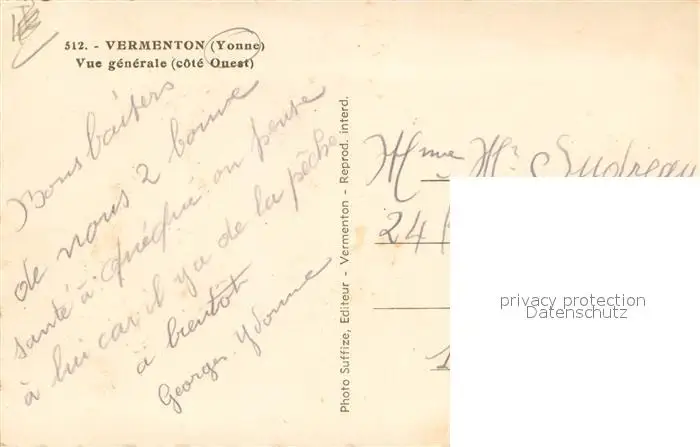 512. - VERMENTON (Yonne)
Vue générale (côté Ouest)
Bons baisers
de nous 2 bonne
santé à quéqué on pense
à lui car il y a de la pêche
à bientôt
Georges Yvonne
Photo Suffize, Editeur - Vermenton - Reprod. interd.
Mme Mr Sudreau
24
privacy protection
Datenschutz